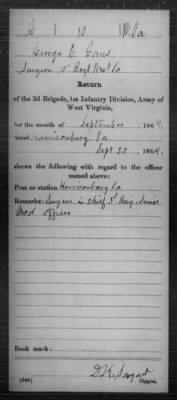 G 10 W. Va
George C. Gans
Surgeon 10" Regt West Va
Return
of the 3d Brigade, 1st Infantry Division, Army of
West Virginia,
for the month of September, 1864,
dated Harrisonburg Va
Sept 30, 1864.
shows the following with regard to the officer
named above:
Post or station Harrisonburg Va
Remarks: Surgeon in Chief 3d Brig Senior
Med officer
Book mark:
(646)
Copyist.